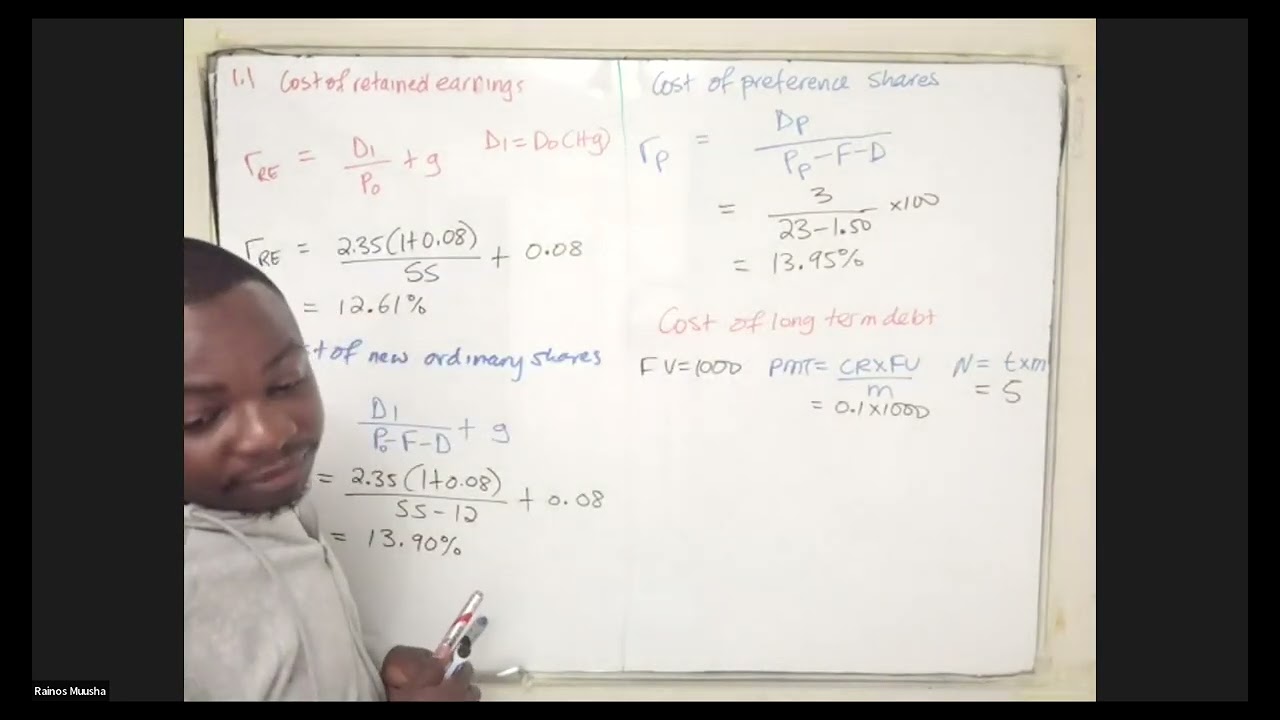 1.1 Cost of retained earnings
rRE = D1 / P0 + g D1 = D0(1+g)
rRE = 2.35(1+0.08) / 55 + 0.08
= 12.61%
of new ordinary shares
D1 / P0-F-D + g
= 2.35(1+0.08) / 55-12 + 0.08
= 13.90%
Cost of preference shares
rp = Dp / Pp-F-D
= 3 / 23-1.50 ×100
= 13.95%
Cost of long term debt
FV=1000 PMT= CR×FV / m N= t×m
= 0.1×1000 = 5
Rainos Muusha